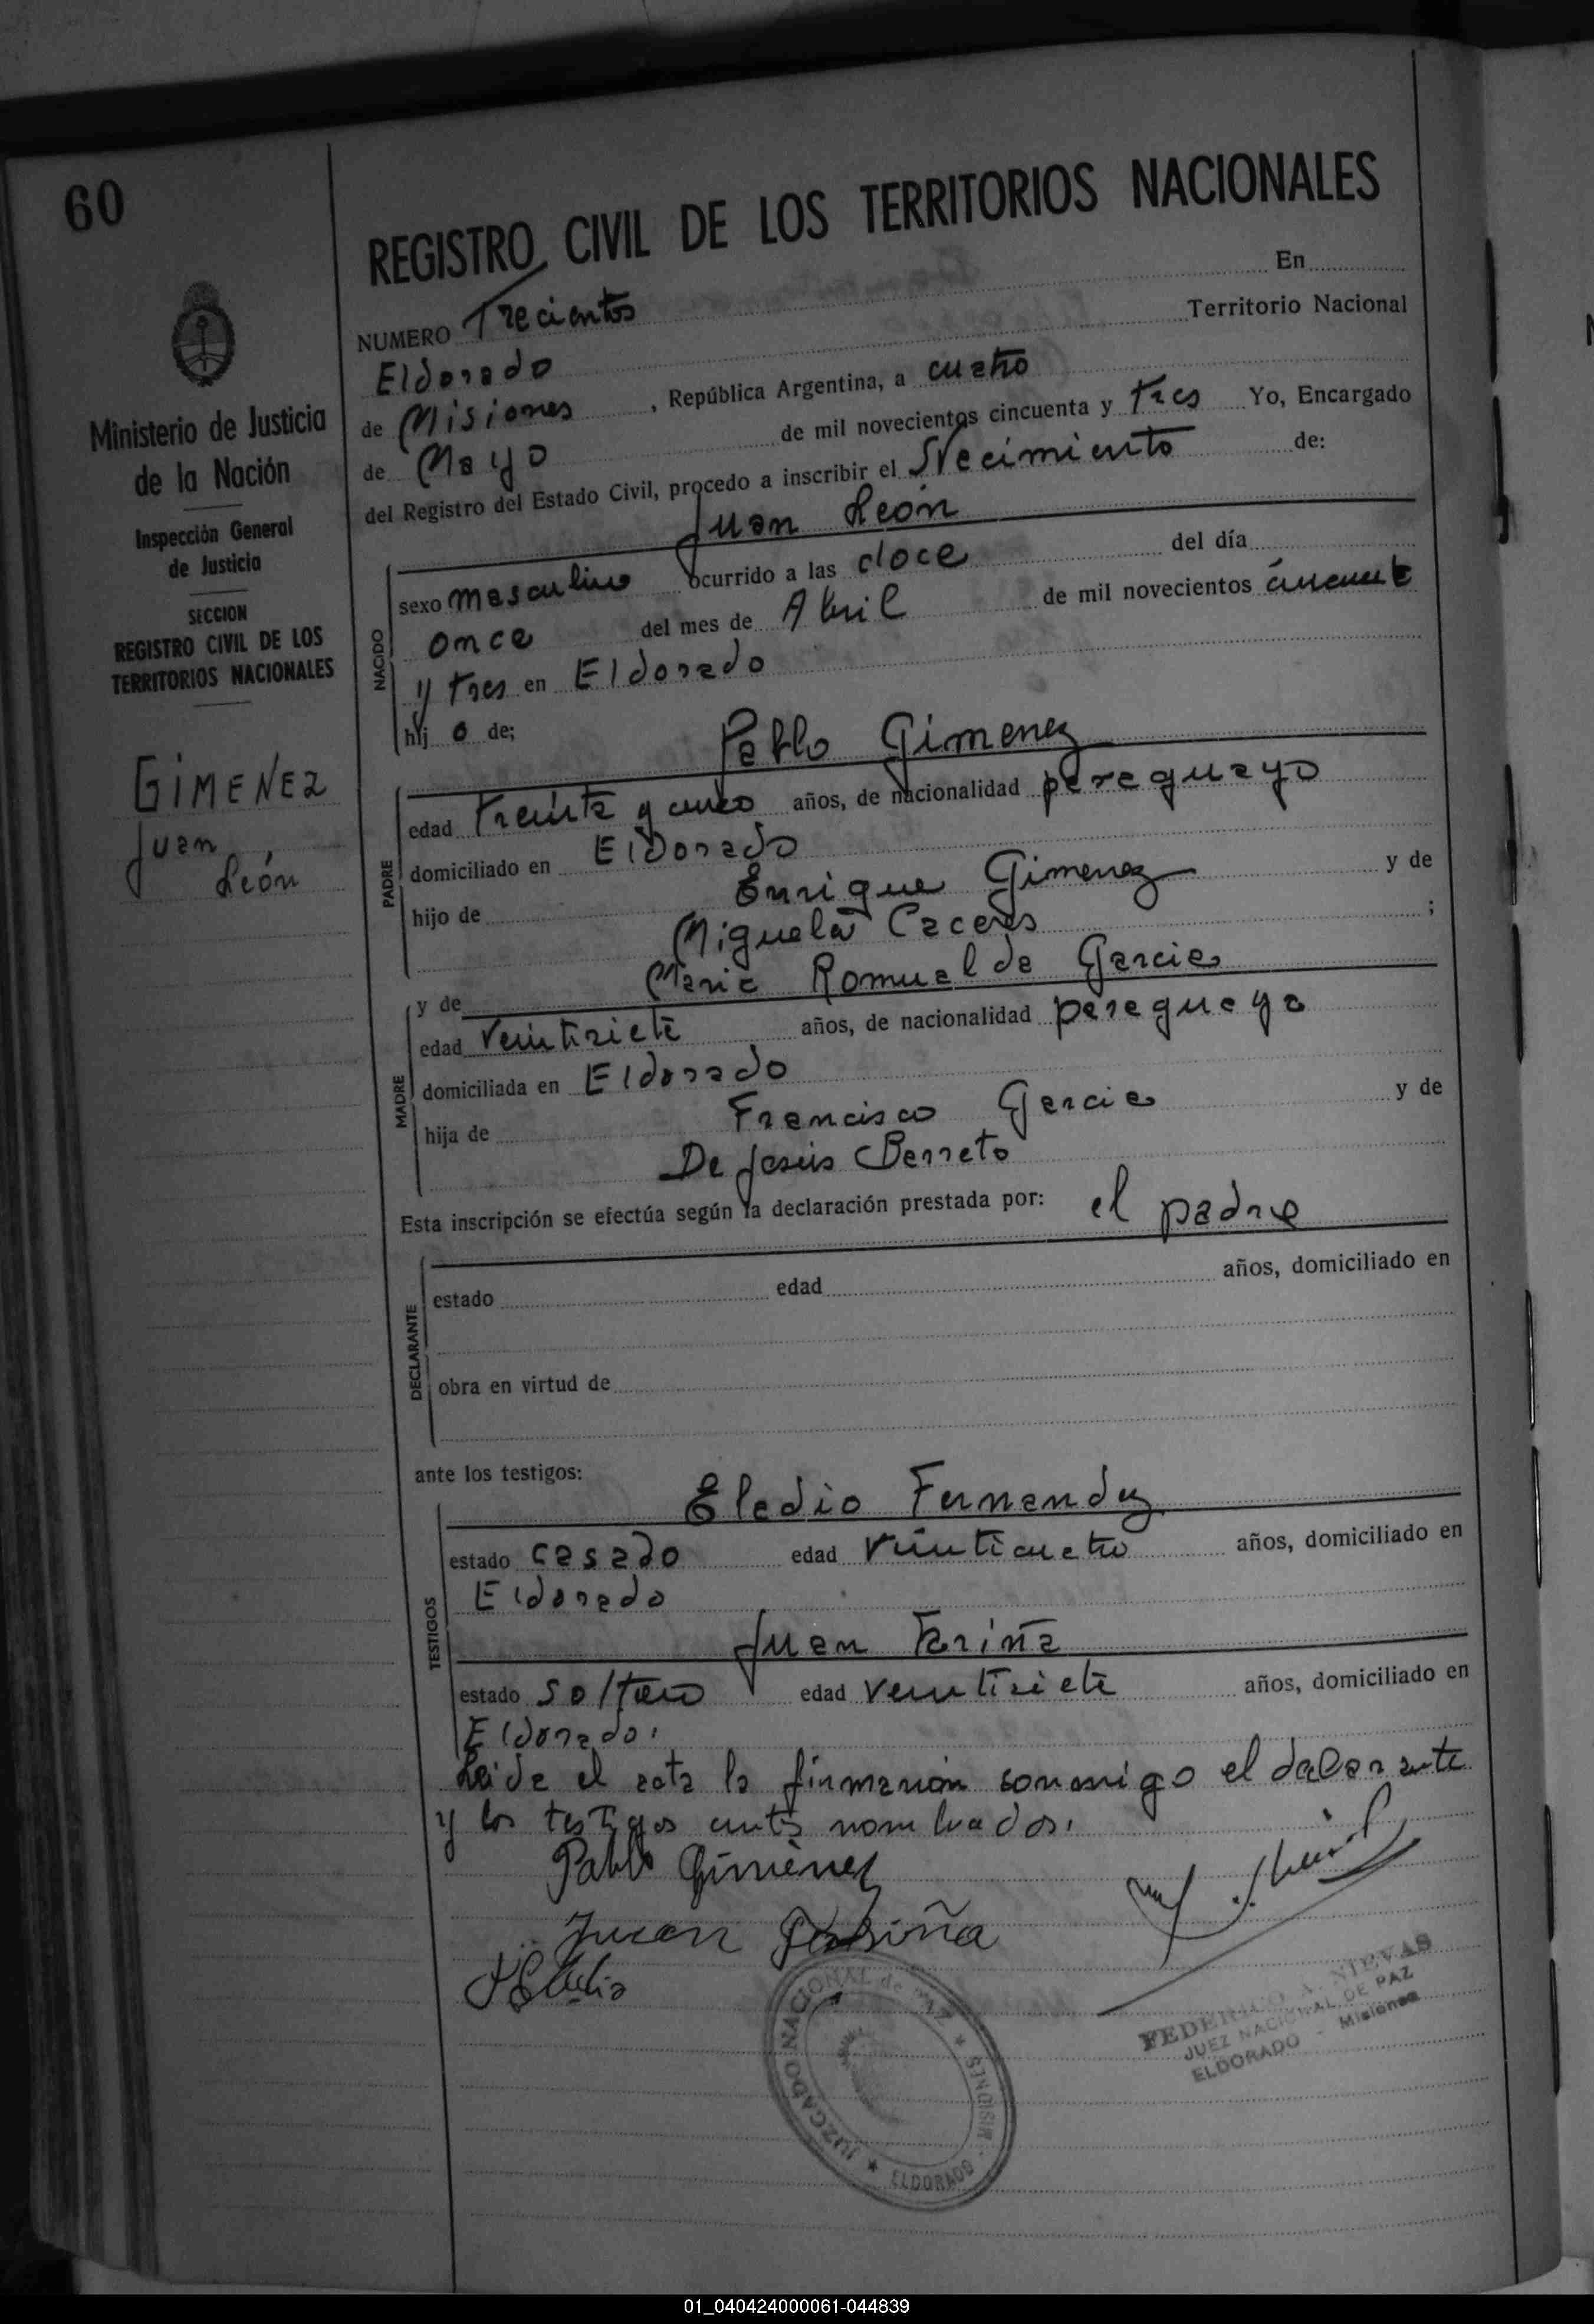 60
REGISTRO CIVIL DE LOS TERRITORIOS NACIONALES
NUMERO Trecientos En
Eldorado Territorio Nacional
de Misiones, República Argentina, a cuatro
de Mayo de mil novecientos cincuenta y tres Yo, Encargado
del Registro del Estado Civil, procedo a inscribir el Necimiento de:
Juan León
NACIDO
sexo masculino ocurrido a las doce del día
once del mes de Abril de mil novecientos cincuenta
y tres en Eldorado
hij o de;
Pablo Gimenez
PADRE
edad treinta y cinco años, de nacionalidad peraguayo
domiciliado en Eldorado
hijo de Enrique Gimenez y de
Miguela Caceres ;
y de Maria Romualda Garcia
MADRE
edad veintisiete años, de nacionalidad paraguaya
domiciliada en Eldorado
hija de Francisco Garcia y de
De Jesús Berreto
Esta inscripción se efectúa según la declaración prestada por: el padre
DECLARANTE
estado edad años, domiciliado en
obra en virtud de
ante los testigos:
Eladio Fernandez
TESTIGOS
estado casado edad veinticuatro años, domiciliado en
Eldorado
Juan Fariña
estado soltero edad veintisiete años, domiciliado en
Eldorado.
Leida el acta la firmarion conmigo el declarante
y los testigos antes nombrados.
Pablo Gimènez
Juan Fariña
Ministerio de Justicia
de la Nación
Inspección General
de Justicia
SECCION
REGISTRO CIVIL DE LOS
TERRITORIOS NACIONALES
GIMENEZ
Juan
León
JUZGADO NACIONAL de PAZ ★ MISIONES · ELDORADO ★
FEDERICO A. NIEVAS
JUEZ NACIONAL DE PAZ
ELDORADO - Misiones
01_040424000061-044839